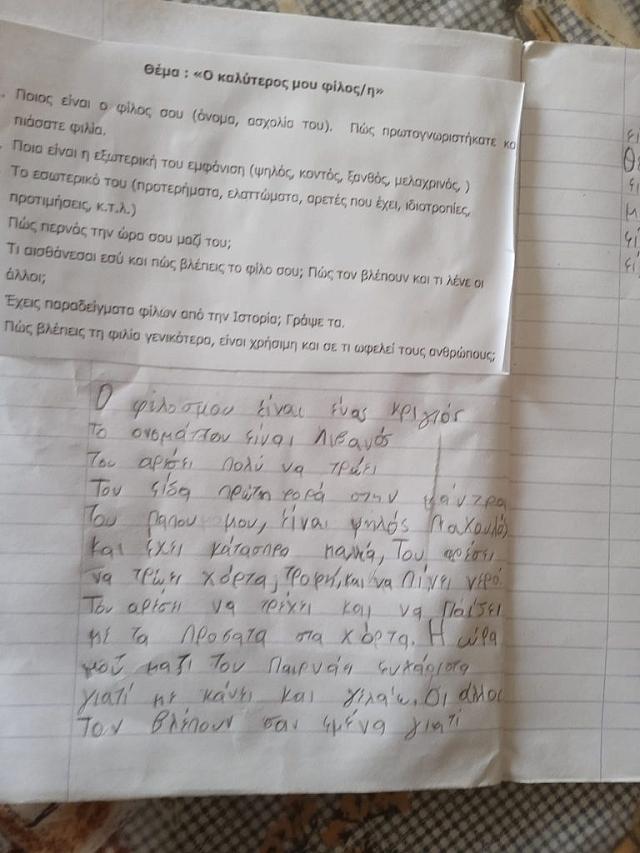 Θέμα : «Ο καλύτερος μου φίλος/η»
Ποιος είναι ο φίλος σου (όνομα, ασχολία του). Πώς πρωτογνωριστήκατε κα
πιάσατε φιλία.
Ποια είναι η εξωτερική του εμφάνιση (ψηλός, κοντός, ξανθός, μελαχρινός, )
Το εσωτερικό του (προτερήματα, ελαττώματα, αρετές που έχει, ιδιοτροπίες,
προτιμήσεις, κ.τ.λ.)
Πώς περνάς την ώρα σου μαζί του;
Τι αισθάνεσαι εσύ και πώς βλέπεις το φίλο σου; Πώς τον βλέπουν και τι λένε οι
άλλοι;
Έχεις παραδείγματα φίλων από την Ιστορία; Γράψε τα.
Πώς βλέπεις τη φιλία γενικότερα, είναι χρήσιμη και σε τι ωφελεί τους ανθρώπους;
Ο φίλοσμου είναι ένας κριγιός
Το ονομάττου είναι Λιβανός
Του αρέσι πολύ να τρώει
Τον είδα πρώτη φορά στην μάντρα
Του παπου μου, είναι ψηλός παχουλός
και έχει κάτασπρα μαλιά, Του αρέσει
να τρώει χόρτα, τροφή, και να πίνει νερό.
Του αρέσει να τρέχει και να παίζει
με τα προσατα στα χόρτα. Η ώρα
μού μαζι του παιρνάη ευχάριστα
γιατί με κάνει και γελάω. Οι άλλοι
Τον βλέπουν σαν εμένα γιατί